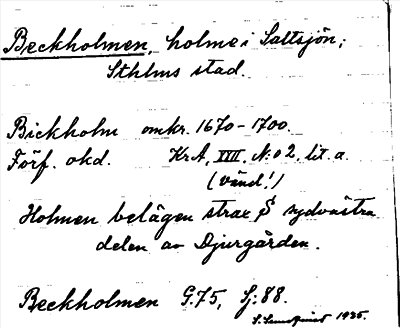 Beckholmen, holme i Saltsjön;
Sthlms stad.
Bickholm omkr. 1670-1700.
Förf. okd. Kr A, XVII, N:o 2, lit. a.
(vänd!)
Holmen belägen strax S sydvästra
delen av Djurgården.
Beckholmen G.75, Sj:88.
S. Sundqvist 1935.